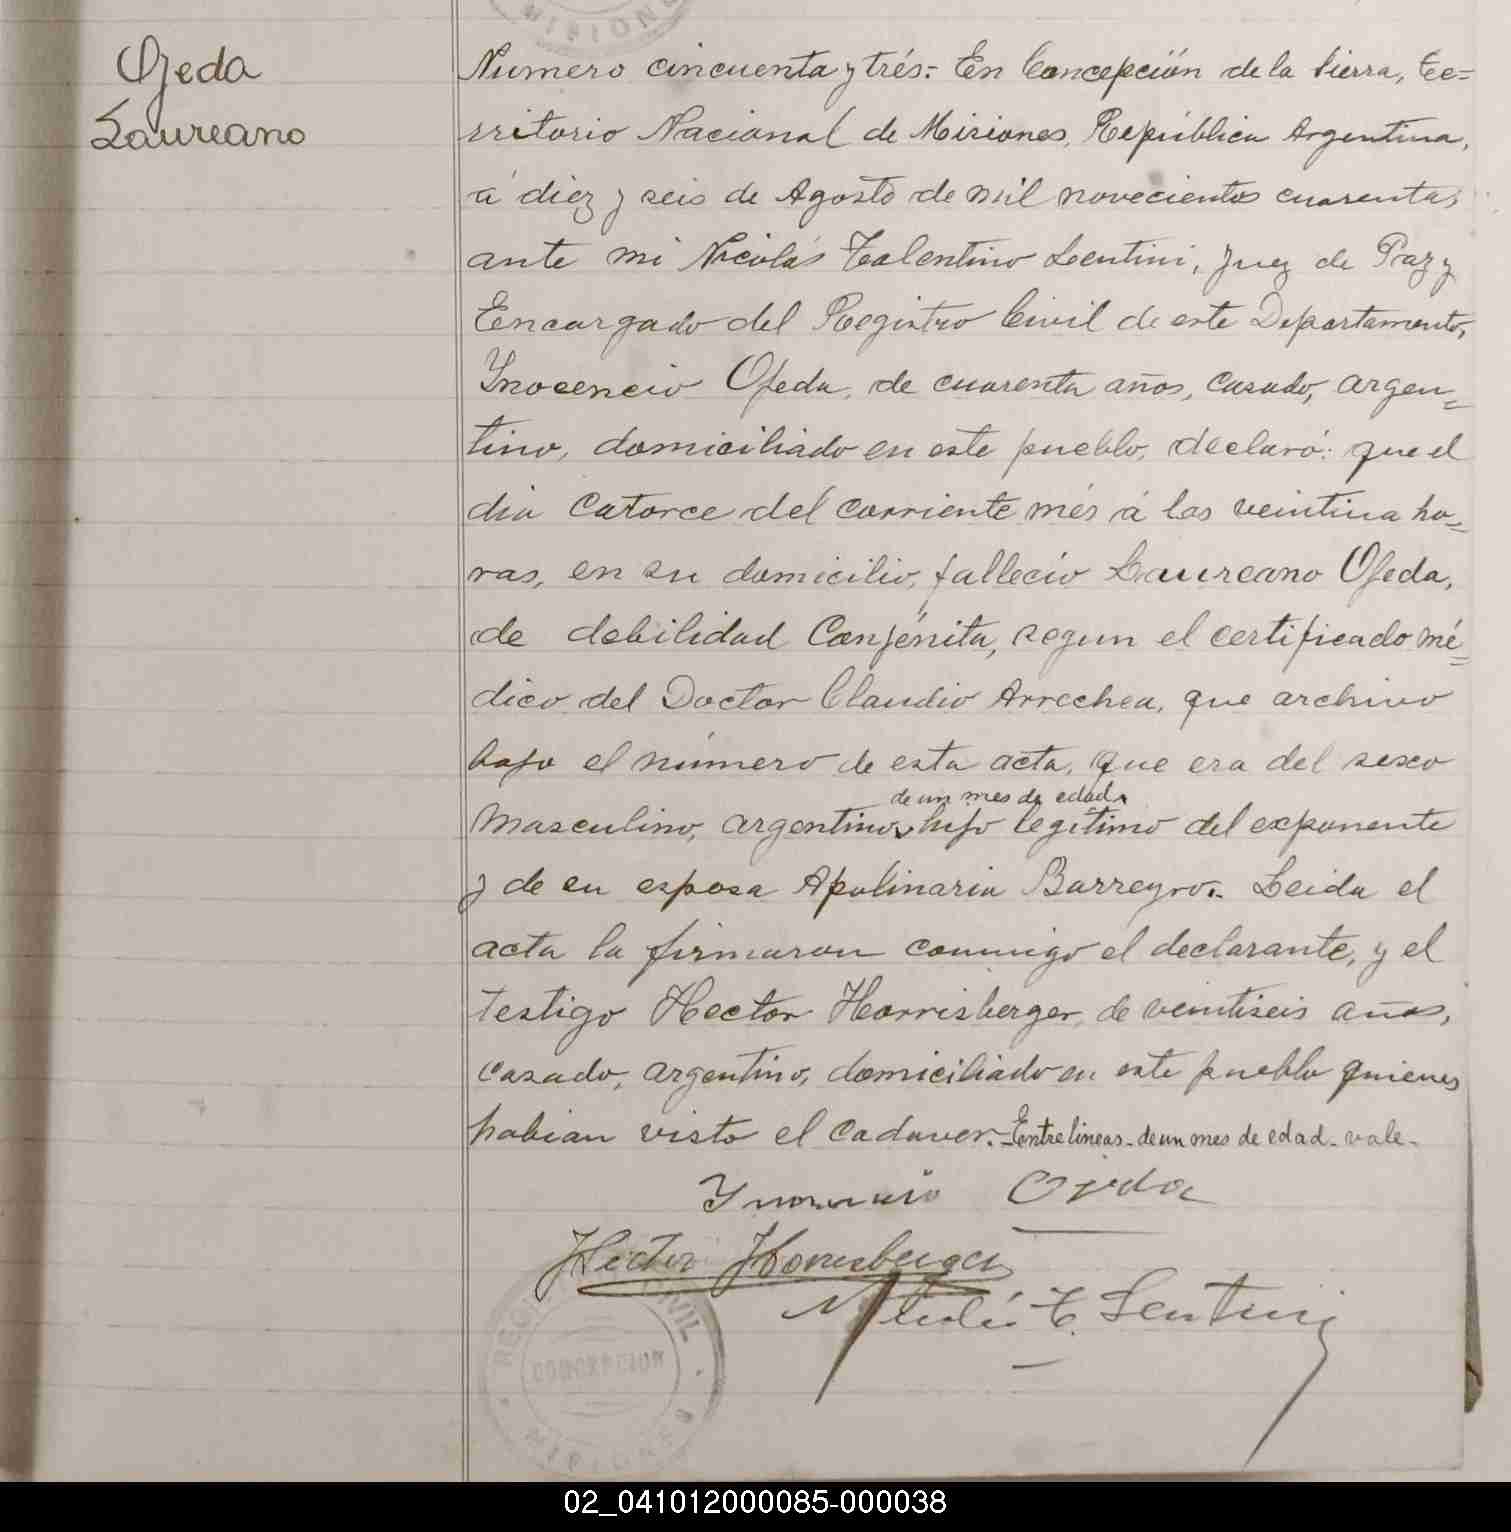 MISIONES
Ojeda
Laureano
Numero cincuenta y trés.= En Concepción de la Sierra, Te=
rritorio Nacional de Misiones, República Argentina,
á diez y seis de Agosto de mil novecientos cuarenta,
ante mi Nicolás Tolentino Lentini, Juez de Paz y
Encargado del Registro Civil de este Departamento,
Ynocencio Ojeda, de cuarenta años, casado, argen=
tino, domiciliado en este pueblo, declaró: que el
dia catorce del corriente més á las veintiua ho=
ras, en su domicilio, falleció Laureano Ojeda,
de debilidad Conjénita, segun el certificado mé=
dico del Doctor Claudio Arrechea, que archivo
bajo el número de esta acta, que era del sexo
de un mes de edad
masculino, argentino, hijo legítimo del exponente
y de su esposa Apolinaria Barreyro.- Leida el
acta la firmaron conmigo el declarante, y el
testigo Hector Horrisberger, de veintiseis años,
casado, argentino, domiciliado en este pueblo quienes
habian visto el cadaver.- Entre lineas - de un mes de edad - vale -
Ynocencio Ojeda
Hector Horrisberger
Nicolás T. Lentini
REGISTRO CIVIL
CONCEPCION
MISIONES
02_041012000085-000038